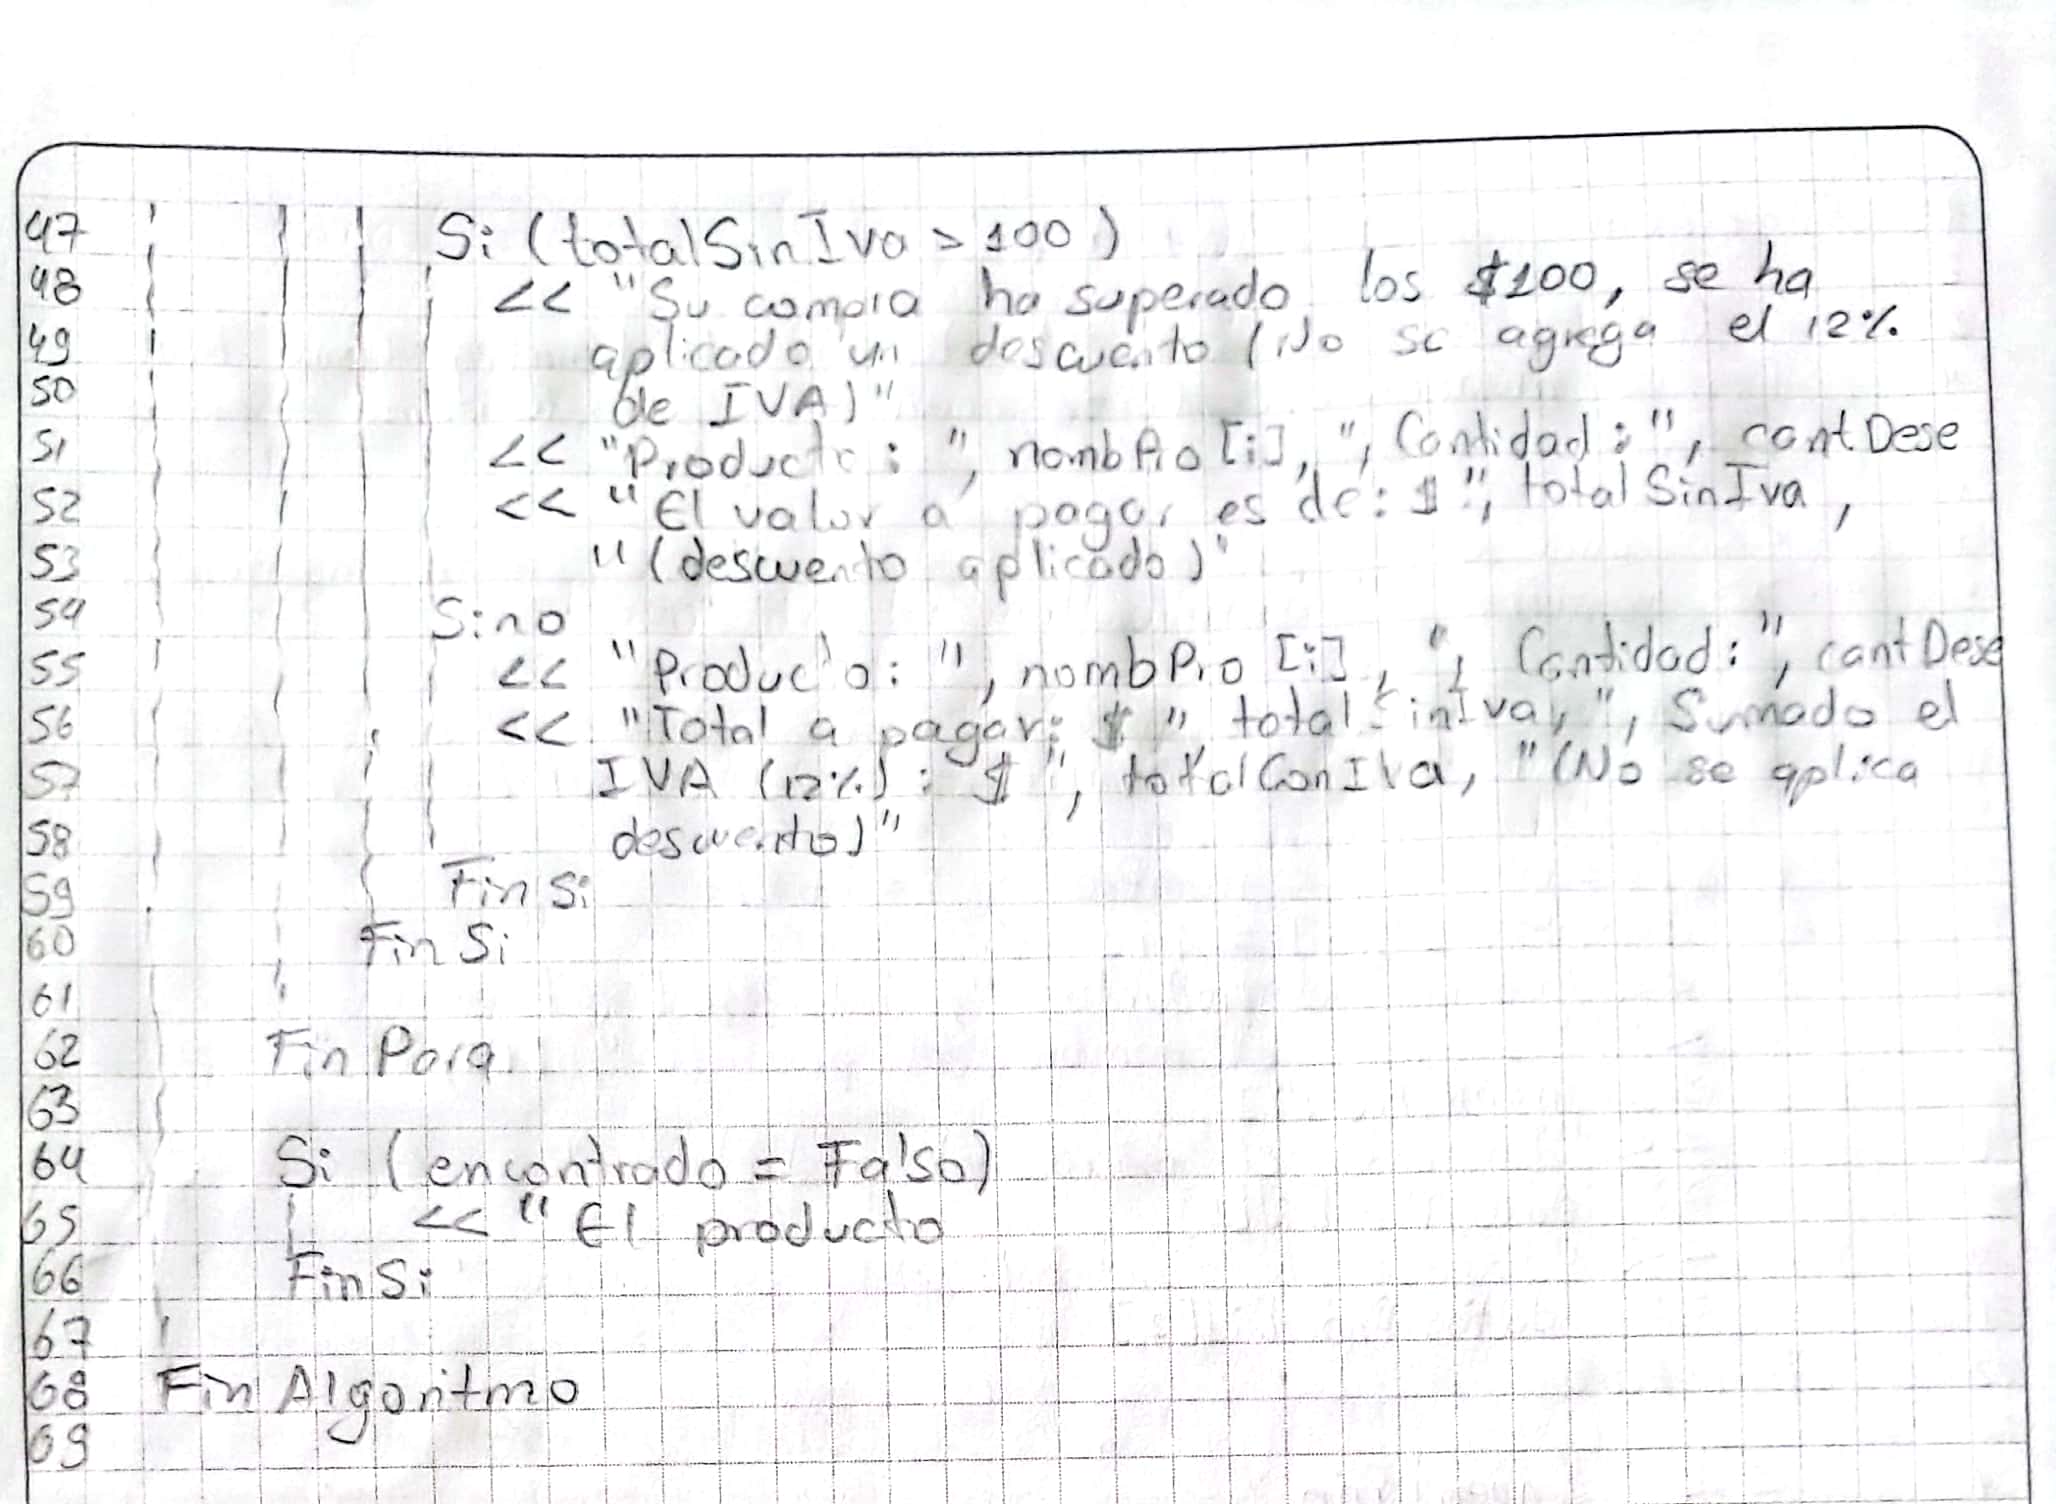 47 Si (totalSinIva > 100)
48 << "Su compra ha superado los $100, se ha
49 aplicado un descuento (No se agrega el 12%
50 de IVA)"
51 << "Producto: ", nombPro[i], ", Cantidad: ", cantDese
52 << "El valor a pagar es de: $", totalSinIva,
53 "(descuento aplicado)"
54 Sino
55 << "Producto: ", nombPro[i], ", Cantidad: ", cantDese
56 << "Total a pagar: $ " totalSinIva, ", Sumado el
57 IVA (12%): $ ", totalConIva, "(No se aplica
58 descuento)"
59 Fin Si
60 Fin Si
61
62 Fin Para
63
64 Si (encontrado = Falso)
65 << "El producto
66 Fin Si
67
68 Fin Algoritmo
69